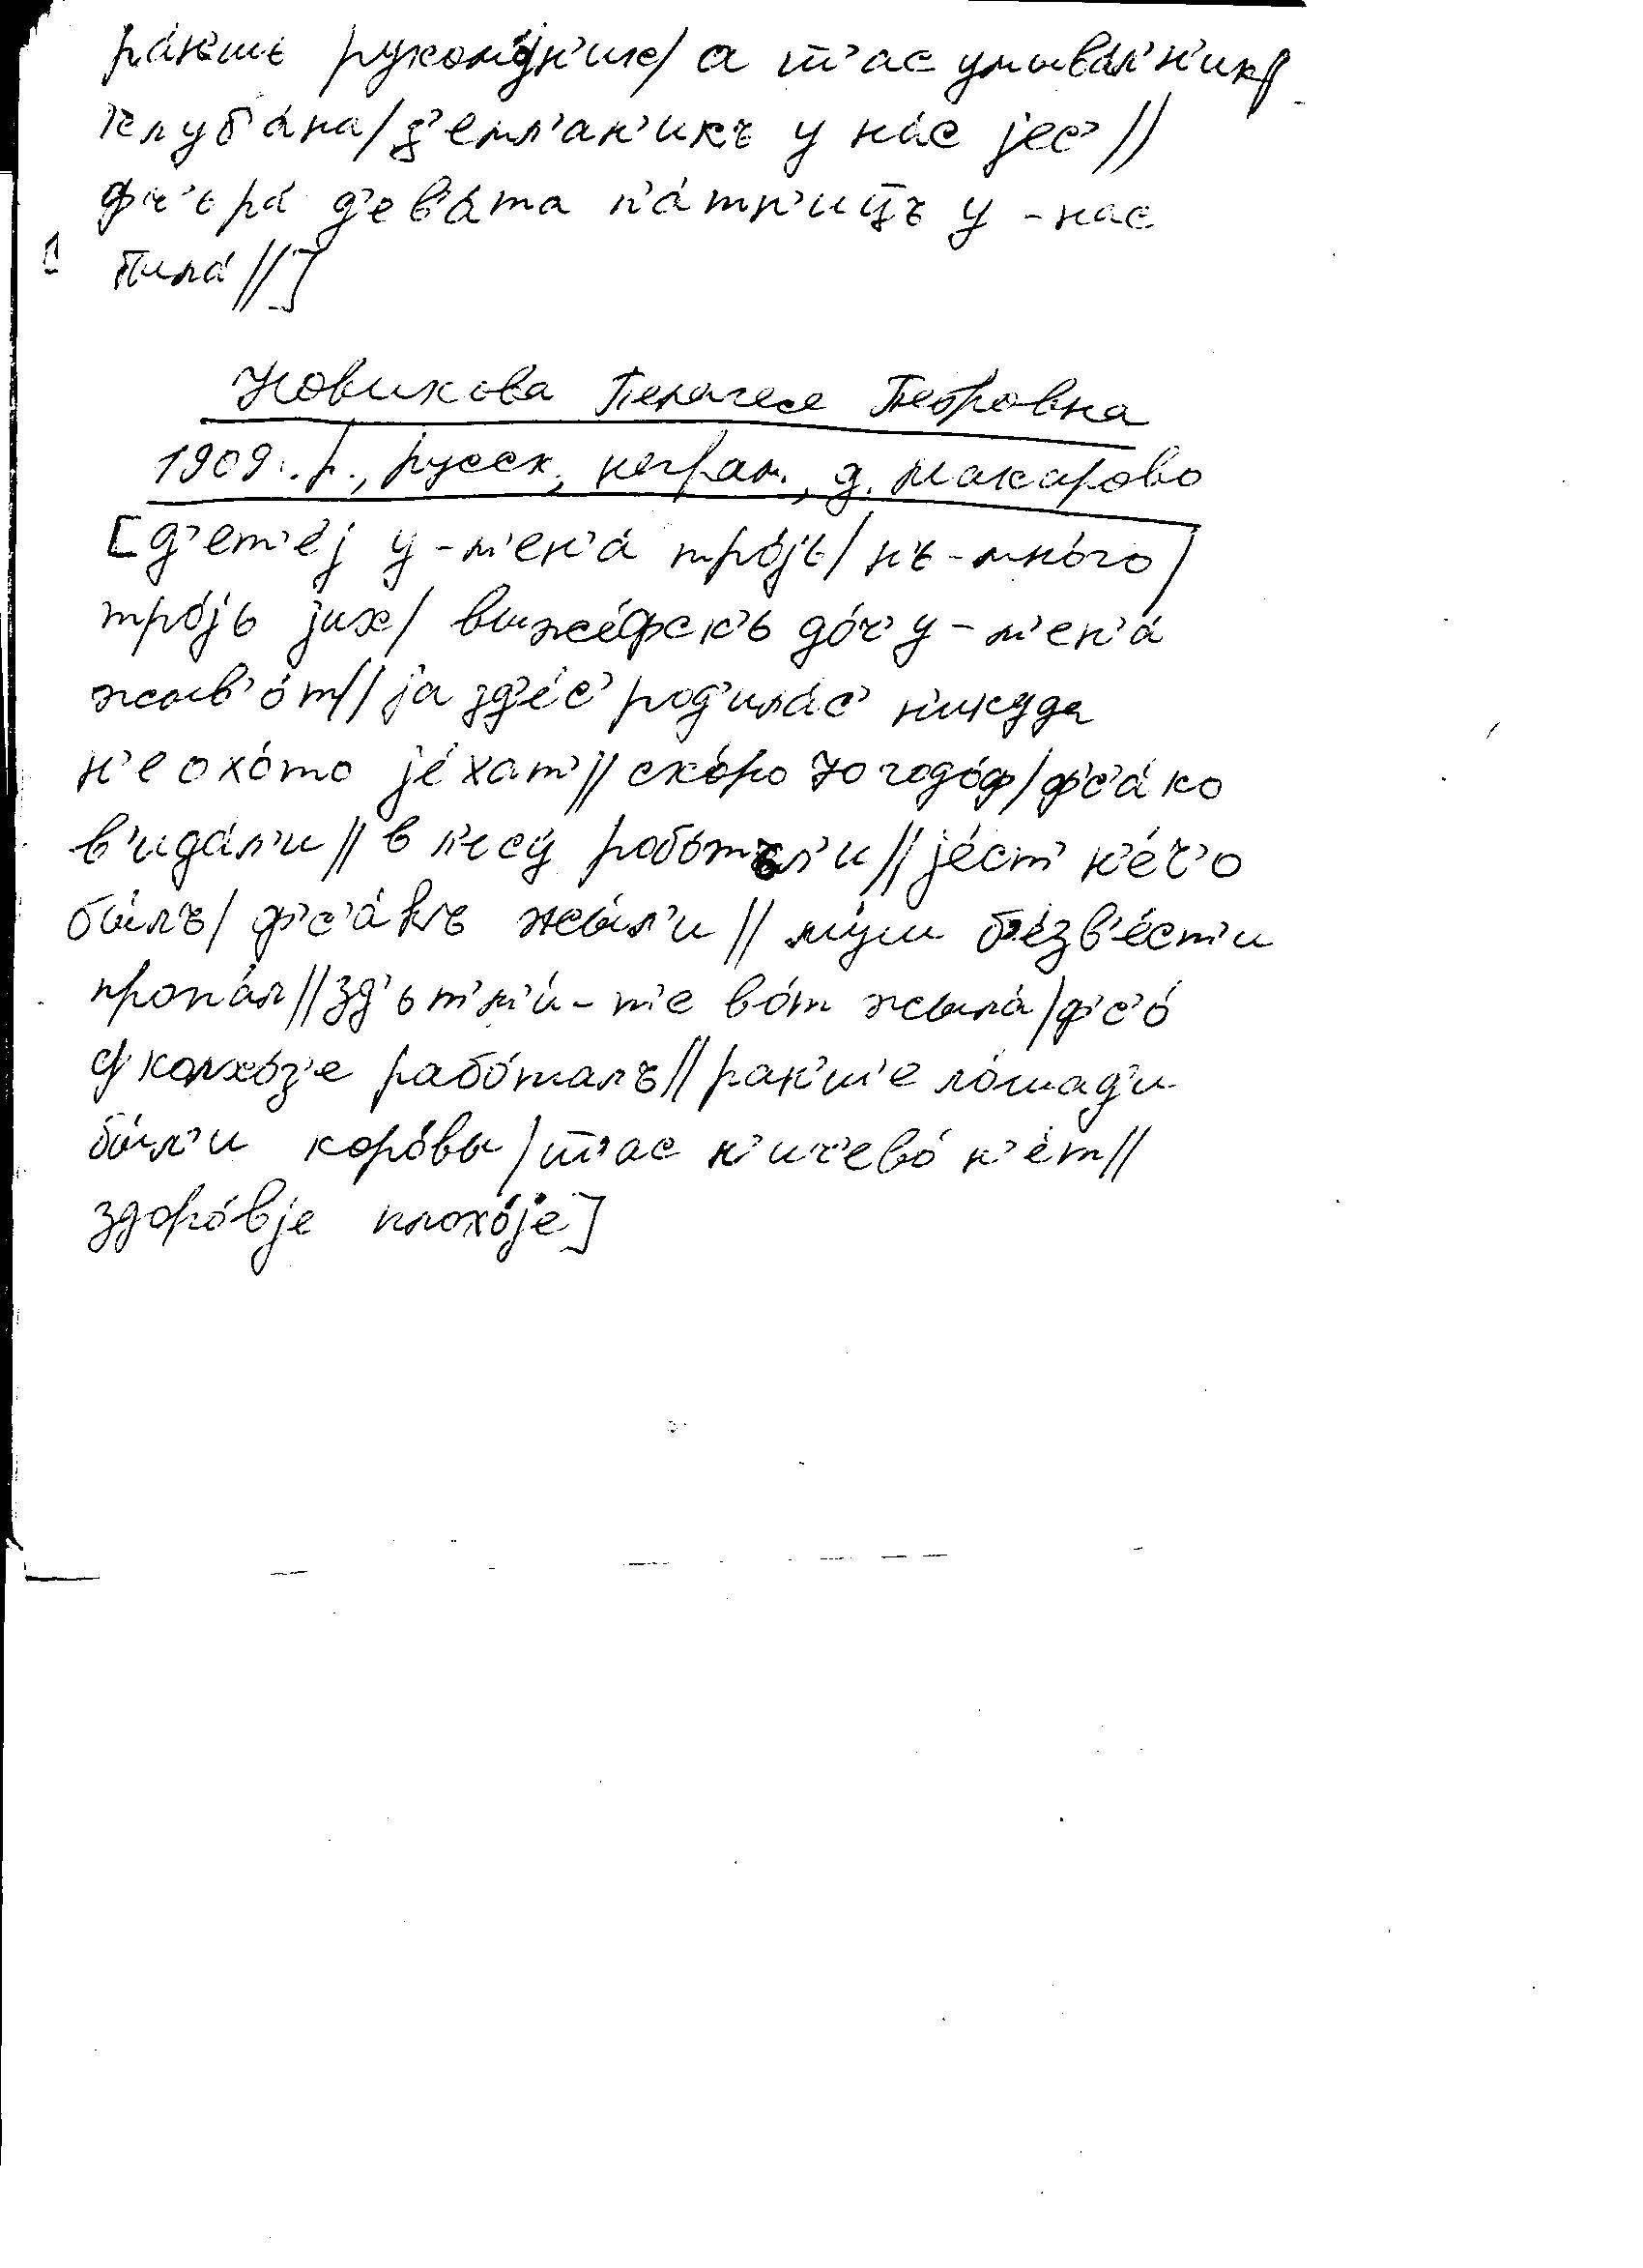 ра́н'шъ рукомо́јн'ик/ а т'ас умыва́л'н'ик//
клуб'а́на/ з'емл'ан'икъ у на́с јес'//
фч'ьра́ д'ев'а́та п'а́тн'ицъ у-нас
была́//]
Новикова Пелагея Петровна
1909 г.р., русск., неграм., д. Макарово
[д'ет'е́ј у-м'ен'а́ тро́јь/ нъ-мно́го/
тро́јь јих/ вы́же́фск'ь до́ч' у-м'ен'а́
жыв'о́т// ја зд'е́с' род'ила́с' н'икуда
н'е охо́то је́хат'// ско́ро 70 годо́ф/ ф'с'а́ко
в'ида́л'и// в л'есу́ робо́тъл'и// је́ст' н'е́ч'о
бы́лъ/ ф'с'а́къ жы́л'и// му́ш б'е́зв'е́ст'и
пропа́л// зд'ьт'м'и́-т'е во́т жыла́/ ф'с'о́
ф колхо́з'е рабо́талъ// ран'ш'е ло́шад'и
бы́л'и коро́вы/ т'ас н'ич'ево́ н'е́т//
здоро́вје плохо́је]